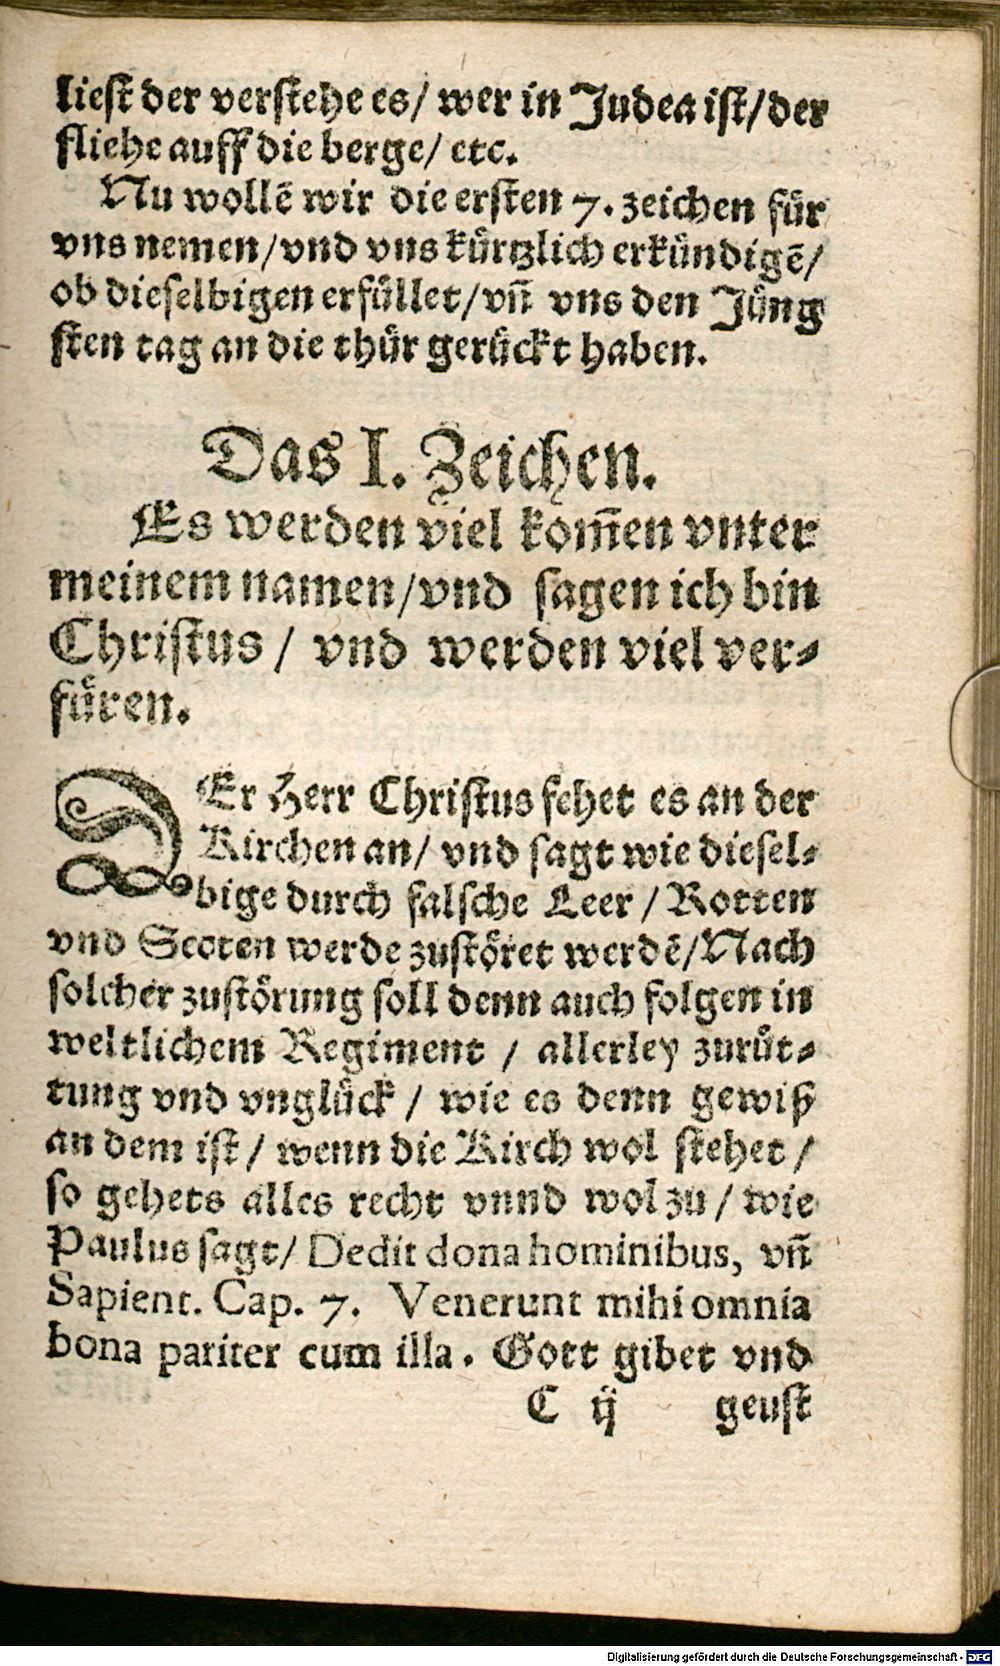 liest der verstehe es/ wer in Judea ist/ der
fliehe auff die berge/ etc.
Nu wollē wir die ersten 7. zeichen für
vns nemen/ vnd vns kürtzlich erkündigē/
ob dieselbigen erfüllet/ vn̄ vns den Jüng
sten tag an die thür gerückt haben.
Das I. Zeichen.
Es werden viel kom̄en vnter
meinem namen/ vnd sagen ich bin
Christus / vnd werden viel ver⸗
füren.
DEr Herr Christus fehet es an der
Kirchen an/ vnd sagt wie diesel⸗
bige durch falsche Leer / Rotten
vnd Secten werde zustöret werdē/ Nach
solcher zustörung soll denn auch folgen in
weltlichem Regiment / allerley zurüt⸗
tung vnd vnglück / wie es denn gewiß
an dem ist / wenn die Kirch wol stehet /
so gehets alles recht vnnd wol zu / wie
Paulus sagt/ Dedit dona hominibus, vn̄
Sapient. Cap. 7. Venerunt mihi omnia
bona pariter cum illa. Gott gibet vnd
C ij geust
Digitalisierung gefördert durch die Deutsche Forschungsgemeinschaft - DFG